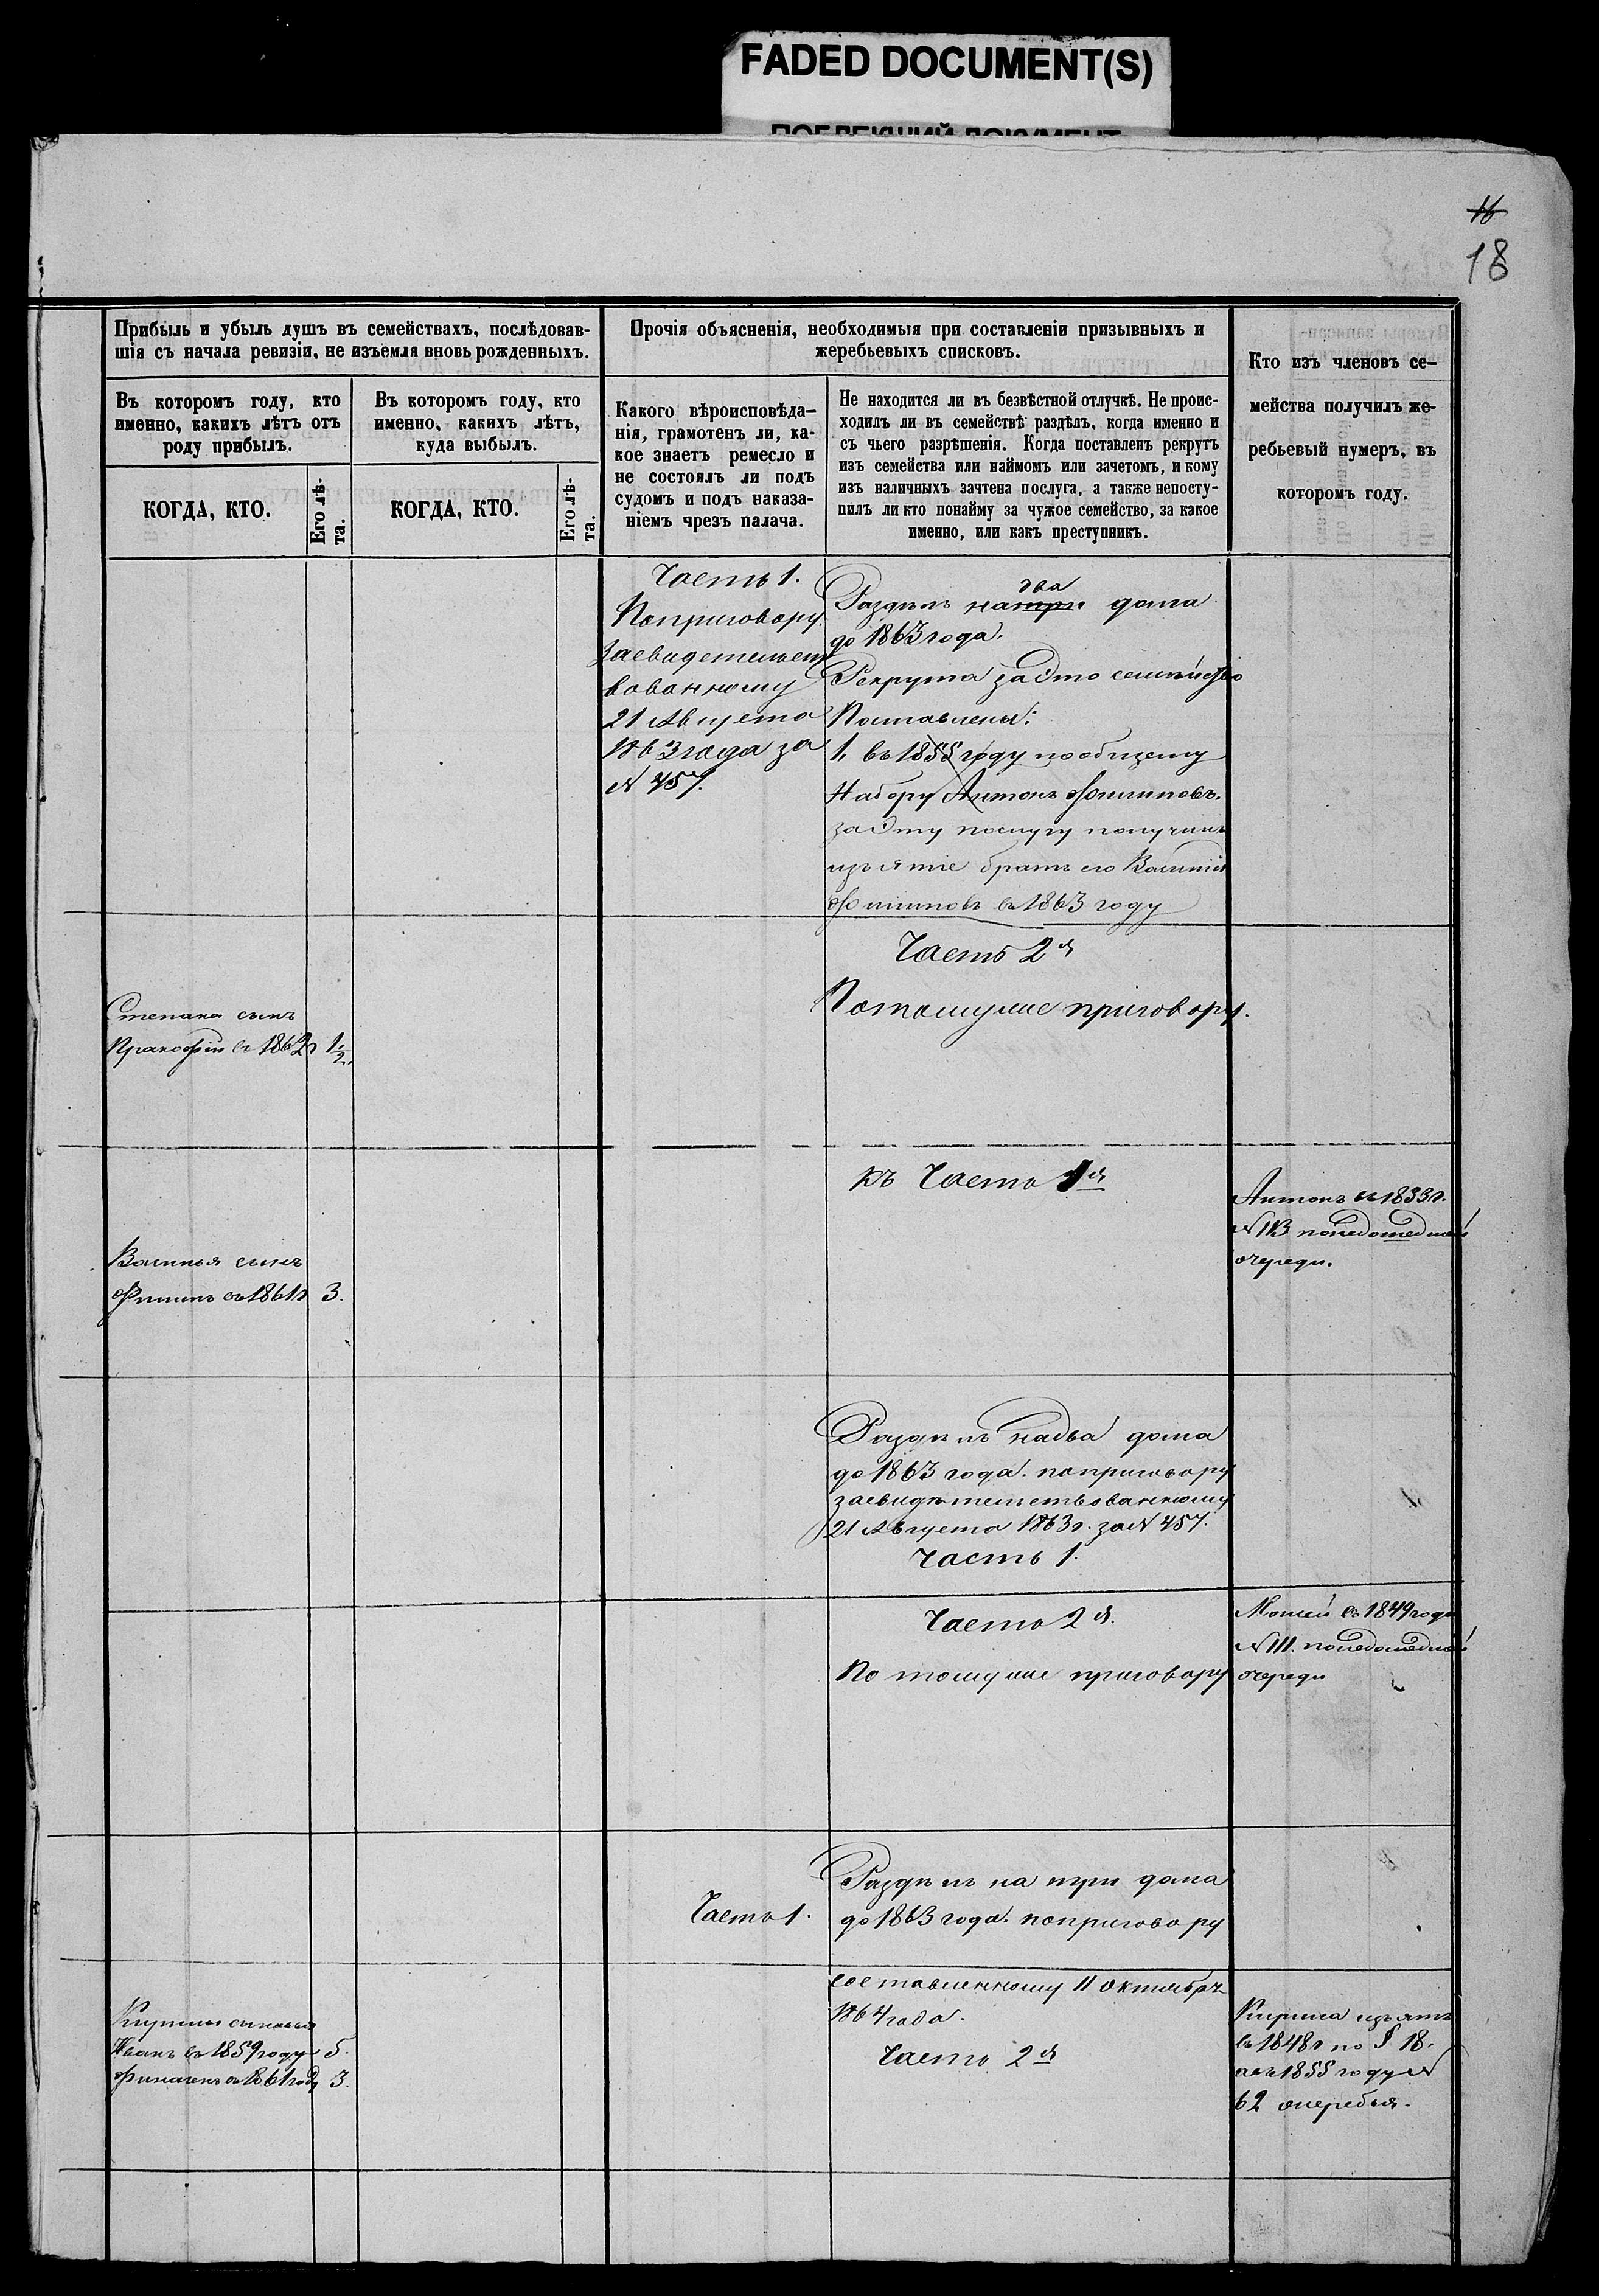 FADED DOCUMENT(S)
ПОБЛЕКШИЙ ДОКУМЕНТ
16
18
Прибыль и убыль душъ въ семействахъ, послѣдовав-
шія съ начала ревизіи, не изъемля вновь рожденныхъ.
Прочія объясненія, необходимыя при составленіи призывныхъ и
жеребьевыхъ списковъ.
Кто изъ членовъ се-
мейства получилъ же-
ребьевый нумеръ, въ
которомъ году.
Въ которомъ году, кто
именно, какихъ лѣтъ отъ
роду прибылъ.
Въ которомъ году, кто
именно, какихъ лѣтъ,
куда выбылъ.
Какого вѣроисповѣда-
нія, грамотенъ ли, ка-
кое знаетъ ремесло и
не состоялъ ли подъ
судомъ и подъ наказа-
ніемъ чрезъ палача.
Не находится ли въ безвѣстной отлучкѣ. Не проис-
ходилъ ли въ семействѣ раздѣлъ, когда именно и
съ чьего разрѣшенія. Когда поставленъ рекрутъ
изъ семейства или наймомъ или зачетомъ, и кому
изъ наличныхъ зачтена послуга, а также непосту-
пилъ ли кто понайму за чужое семейство, за какое
именно, или какъ преступникъ.
КОГДА, КТО.
Его лѣ-
та.
КОГДА, КТО.
Его лѣ-
та.
Часть 1.
Поприговору
Засвидетельст
вованному
21 Августа
1863 года за
№ 457.
два
Раздѣлъ натри дома
до 1863 года.
Рекрута заэто семѣйство
Поставлены:
1, въ 1855 году пообщему
Набору Антонъ Филиповъ.
заэту послугу получилъ
изъятіе братъ его Василій
Филиповъ въ 1863 году
Часть 2я
Потомуже приговору.
Степана сынъ
Пракофій въ 1862г 1/2.
къ Часть 1я
Антонъ въ 1833г.
№ 113 понедошедшей
очереди.
Василья сынъ
Филипъ въ 1861г 3.
Раздѣлъ надва дома
до 1863 года. поприговору
засвидѣтельствованному
21 Августа 1863г. за № 457.
Часть 1.
Часть 2я.
По томуже приговору
въ 1849 году
№ 111. понедошедшей
очереди
Часть 1.
Раздѣлъ на три дома
до 1863 года. поприговору
составленному 11 октября
1864 года.
Часть 2я
Кирилы сыновья
Иванъ въ 1859 году 5.
въ 1861 году 3.
Кирила изъятъ
въ 1848г по § 18.
въ 1855 году №
62